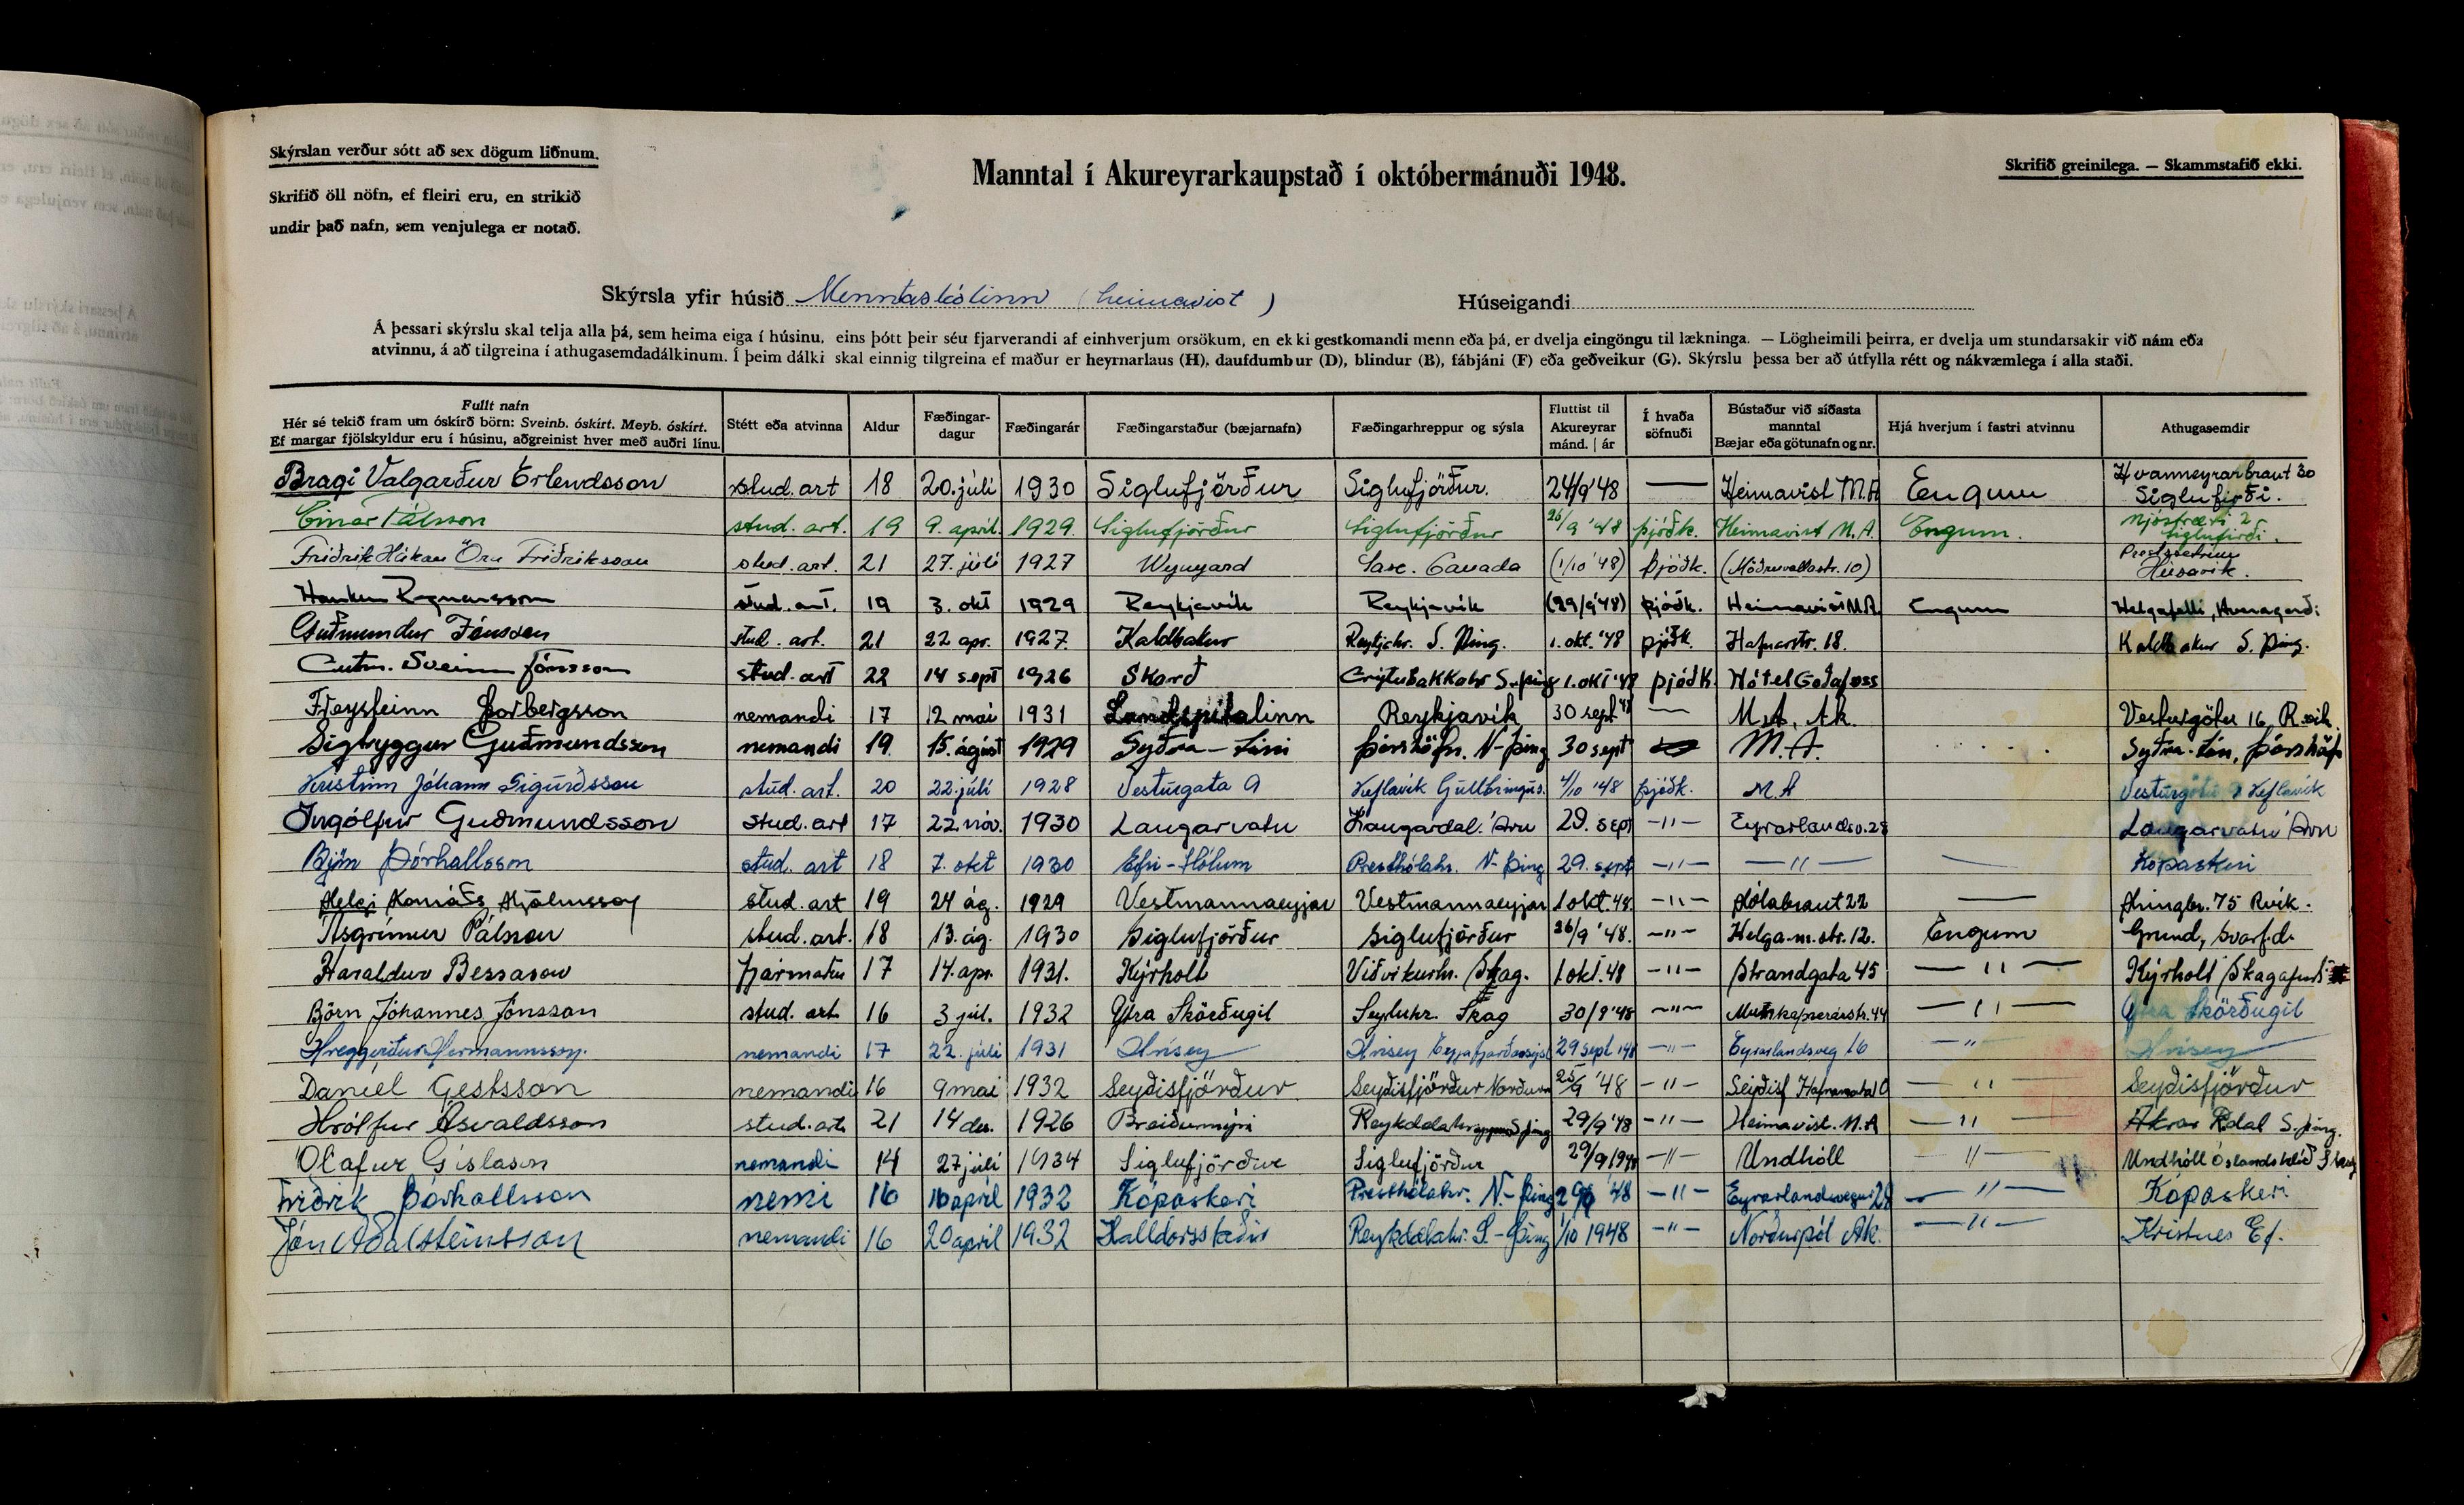 Skýrslan verður sótt að sex dögum liðnum.
Skrifið öll nöfn, ef fleiri eru, en strikið
undir það nafn, sem venjulega er notað.
Manntal í Akureyrarkaupstað í októbermánuði 1948.
Skrifið greinilega. — Skammstafið ekki.
Skýrsla yfir húsið Menntaskólinn (heimavist) Húseigandi
Á þessari skýrslu skal telja alla þá, sem heima eiga í húsinu, eins þótt þeir séu fjarverandi af einhverjum orsökum, en ekki gestkomandi menn eða þá, er dvelja eingöngu til lækninga. — Lögheimili þeirra, er dvelja um stundarsakir við nám eða
atvinnu, á að tilgreina í athugasemdadálkinum. Í þeim dálki skal einnig tilgreina ef maður er heyrnarlaus (H), daufdumbur (D), blindur (B), fábjáni (F) eða geðveikur (G). Skýrslu þessa ber að útfylla rétt og nákvæmlega í alla staði.
Fullt nafn
Hér sé tekið fram um óskírð börn: Sveinb. óskírt. Meyb. óskírt.
Ef margar fjölskyldur eru í húsinu, aðgreinist hver með auðri línu.
Stétt eða atvinna
Aldur
Fæðingar-
dagur
Fæðingarár
Fæðingarstaður (bæjarnafn)
Fæðingarhreppur og sýsla
Fluttist til
Akureyrar
mánd. | ár
Í hvaða
söfnuði
Bústaður við síðasta
manntal
Bæjar eða götunafn og nr.
Hjá hverjum í fastri atvinnu
Athugasemdir
Bragi Valgarður Erlendsson stud. art 18 20. júlí 1930 Siglufjörður Siglufjörður. 24/9 '48 — Heimavist M.A Engum Hvanneyrarbraut 30 Siglufirði.
Einar Pálsson stud. art. 19 9. apríl. 1929 Siglufjörður Siglufjörður 26/9 '48 þjóðk. Heimavist M.A. Engum. Mjóstræti 2 Siglufirði.
Friðrik Hákan Örn Friðriksson stud. art. 21 27. júlí 1927 Wynyard Sasc. Canada (1/10 '48) þjóðk. (Möðruvallastr. 10) Húsavík.
Haukur Ragnarsson stud. art. 19 3. okt 1929 Reykjavík Reykjavík (29/9 '48) þjóðk. Heimavist M.A. Engum Helgafelli, Hveragerði
Guðmundur Jónsson stud. art. 21 22 apr. 1927. Kaldbakur Reykjahr. S. Þing. 1. okt. '48 þjóðk Hafnarstr. 18. Kaldbakur S. Þing.
Guðm. Sveinn Jónsson stud. art 22 14 sept 1926 Skarð Grýtubakkahr S-þing 1. okt '48 þjóðk. Hótel Goðafoss
Freysteinn Þorbergsson nemandi 17 12 maí 1931 Landspítalinn Reykjavík 30 sept '48 — M.A. Ak. Vesturgötu 16, R.vík.
Sigtryggur Guðmundsson nemandi 19. 15. ágúst 1929 Syðra-Lóni Þórshöfn. N-Þing 30 sept M.A. Syðra-Lón, Þórshöfn
Kristinn Jóhann Sigurðsson stud. art. 20 22. júlí 1928 Vesturgata 9 Keflavík Gullbringus. 4/10 '48 þjóðk. M.A Vesturgötu 9 Keflavík
Ingólfur Guðmundsson stud. art 17 22. nóv. 1930 Laugarvatn Laugardal. Árn 29. sept —"— Eyrarlandsv. 28 Laugarvatn Árn
Björn Þórhallsson stud. art 18 7. okt 1930 Efri-Hólum Presthólahr. N-Þing 29. sept —"— —"— — Kópaskeri
Helgi Konráðs Hjálmsson stud. art 19 24 ág. 1929 Vestmannaeyjar Vestmannaeyjar 1 okt. 48. —"— Hólabraut 22 — Hringbr. 75 Rvík.
Ásgrímur Pálsson stud. art. 18 13. ág. 1930 Siglufjörður Siglufjörður 26/9 '48. —"— Helga-m.str. 12. Engum Grund, Svarf.d.
Haraldur Bessason fjármaður 17 14. apr. 1931. Kýrholt Viðvíkurhr. Skag. 1. okt. 48 —"— Strandgata 45 —"— Kýrholt Skagafirði
Björn Jóhannes Jónsson stud. art. 16 3 júl. 1932 Ytra Skörðugil Seyluhr. Skag 30/9 '48 —"— Munkaþverárstr. 44 —"— Ytra Skörðugil
Hreggviður Hermannsson. nemandi 17 22. júlí 1931 Hrísey Hrísey Eyjafjarðarsýsl 29 sept 148 —"— Eyrarlandsveg 16 —"— Hrísey
Daníel Gestsson nemandi 16 9 maí 1932 Seyðisfjörður Seyðisfjörður Norðurm 25/9 '48 —"— Seyðisf —"— Seyðisfjörður
Hrólfur Ásvaldsson stud. art. 21 14 des. 1926 Breiðumýri Reykdælahreppur S þing 29/9 '48 —"— Heimavist. M.A —"— Akrar Rdal S. þing.
Ólafur Gíslason nemandi 14 27 júlí 1934 Siglufjörður Siglufjörður 29/9 1948 —"— Undhóll —"— Undhóll Óslandshlíð Skag
Friðrik Þórhallsson nemi 16 16 apríl 1932 Kópaskeri Presthólahr. N-Þing 29/9 '48 —"— Eyrarlandsvegur 28 —"— Kópaskeri
Jón Aðalsteinsson nemandi 16 20 apríl 1932 Halldórsstaðir Reykdælahr. S-Þing 1/10 1948 —"— Norðurpól Ak. —"— Kristnes Ef.